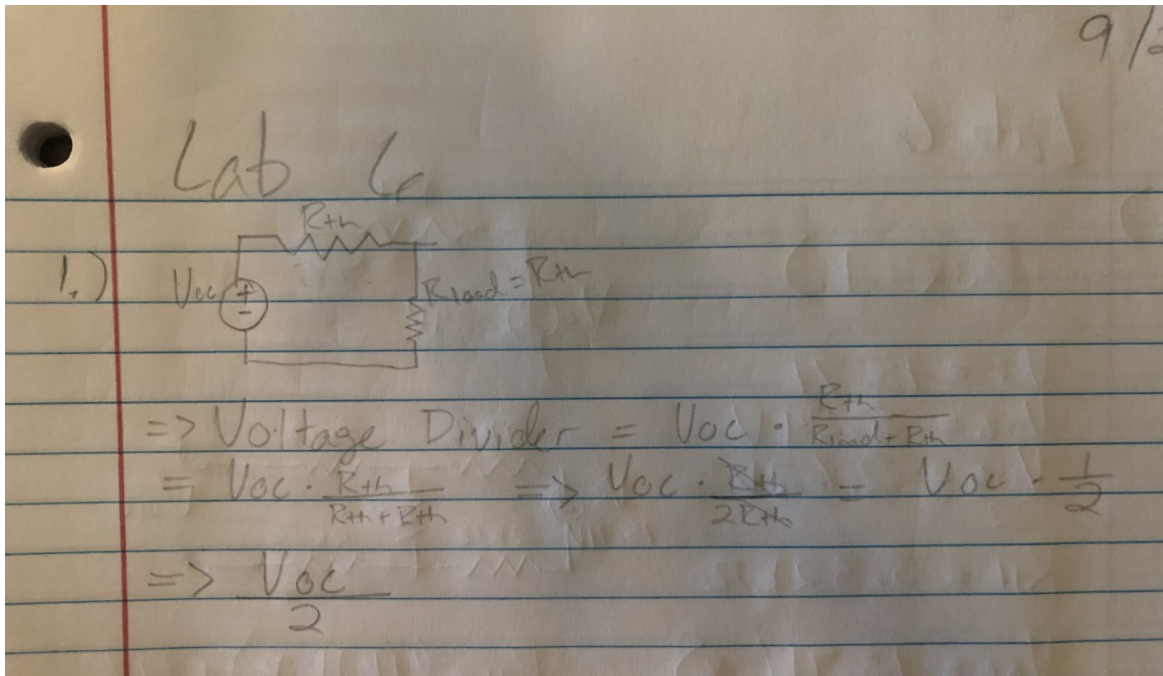 9/
Lab 6
Rth
1.)
Voc
+
-
Rload = Rth
=> Voltage Divider = Voc · Rth / Rload + Rth
= Voc · Rth / Rth + Rth => Voc · Rth / 2Rth = Voc · 1/2
=> Voc / 2